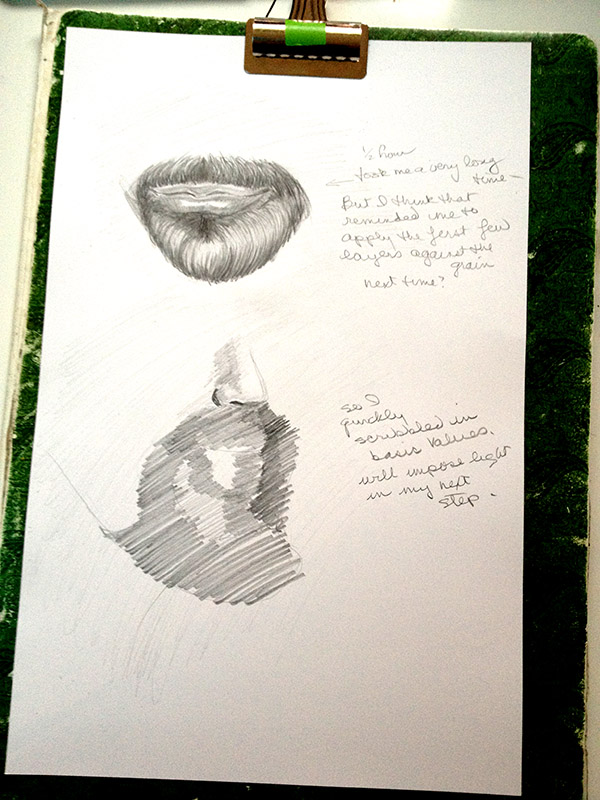 1/2 hour
took me a very long
time -
But I think that
reminded me to
apply the first few
layers against the
grain
next time?
so I
quickly
scribbled in
basis values.
will impose light
in my next
step.